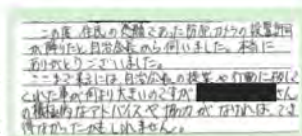 この度、住民の念願であった防犯カメラの設置許可
が降りたと自治会長から伺いました。本当に
ありがとうございました。
ここまで来るには自治会長の提案や行動に移して
くれた事が何より大きいのですが さん
の積極的なアドバイスや協力がなければ、でき
得なかったかもしれません。